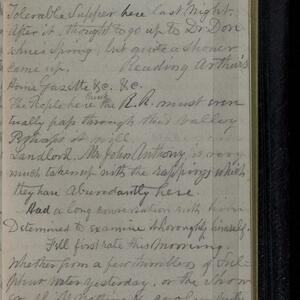 Tolerable Supper here last Night.
After it, thought to go up to Dr Don
Spring, but quite a shower
came up. Reading Arthur's
Home Gazette &c. &c.
The People here think the R.R. must even
tually pass through this valley
Perhaps it will.
Landlord, Mr John Anthony, is very
much taken up with the rappings, which
they have abundantly here.
Had a long conversation with him
Determined to examine thoroughly himself.
Fell first rate this Morning.
Whether from a few tumblers of Sul-
phur water yesterday, or the